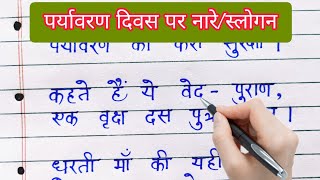 पर्यावरण दिवस पर नारे/स्लोगन
पर्यावरण की करो सुरक्षा।
कहते हैं ये वेद-पुराण,
एक वृक्ष दस पुत्र
धरती माँ की यही